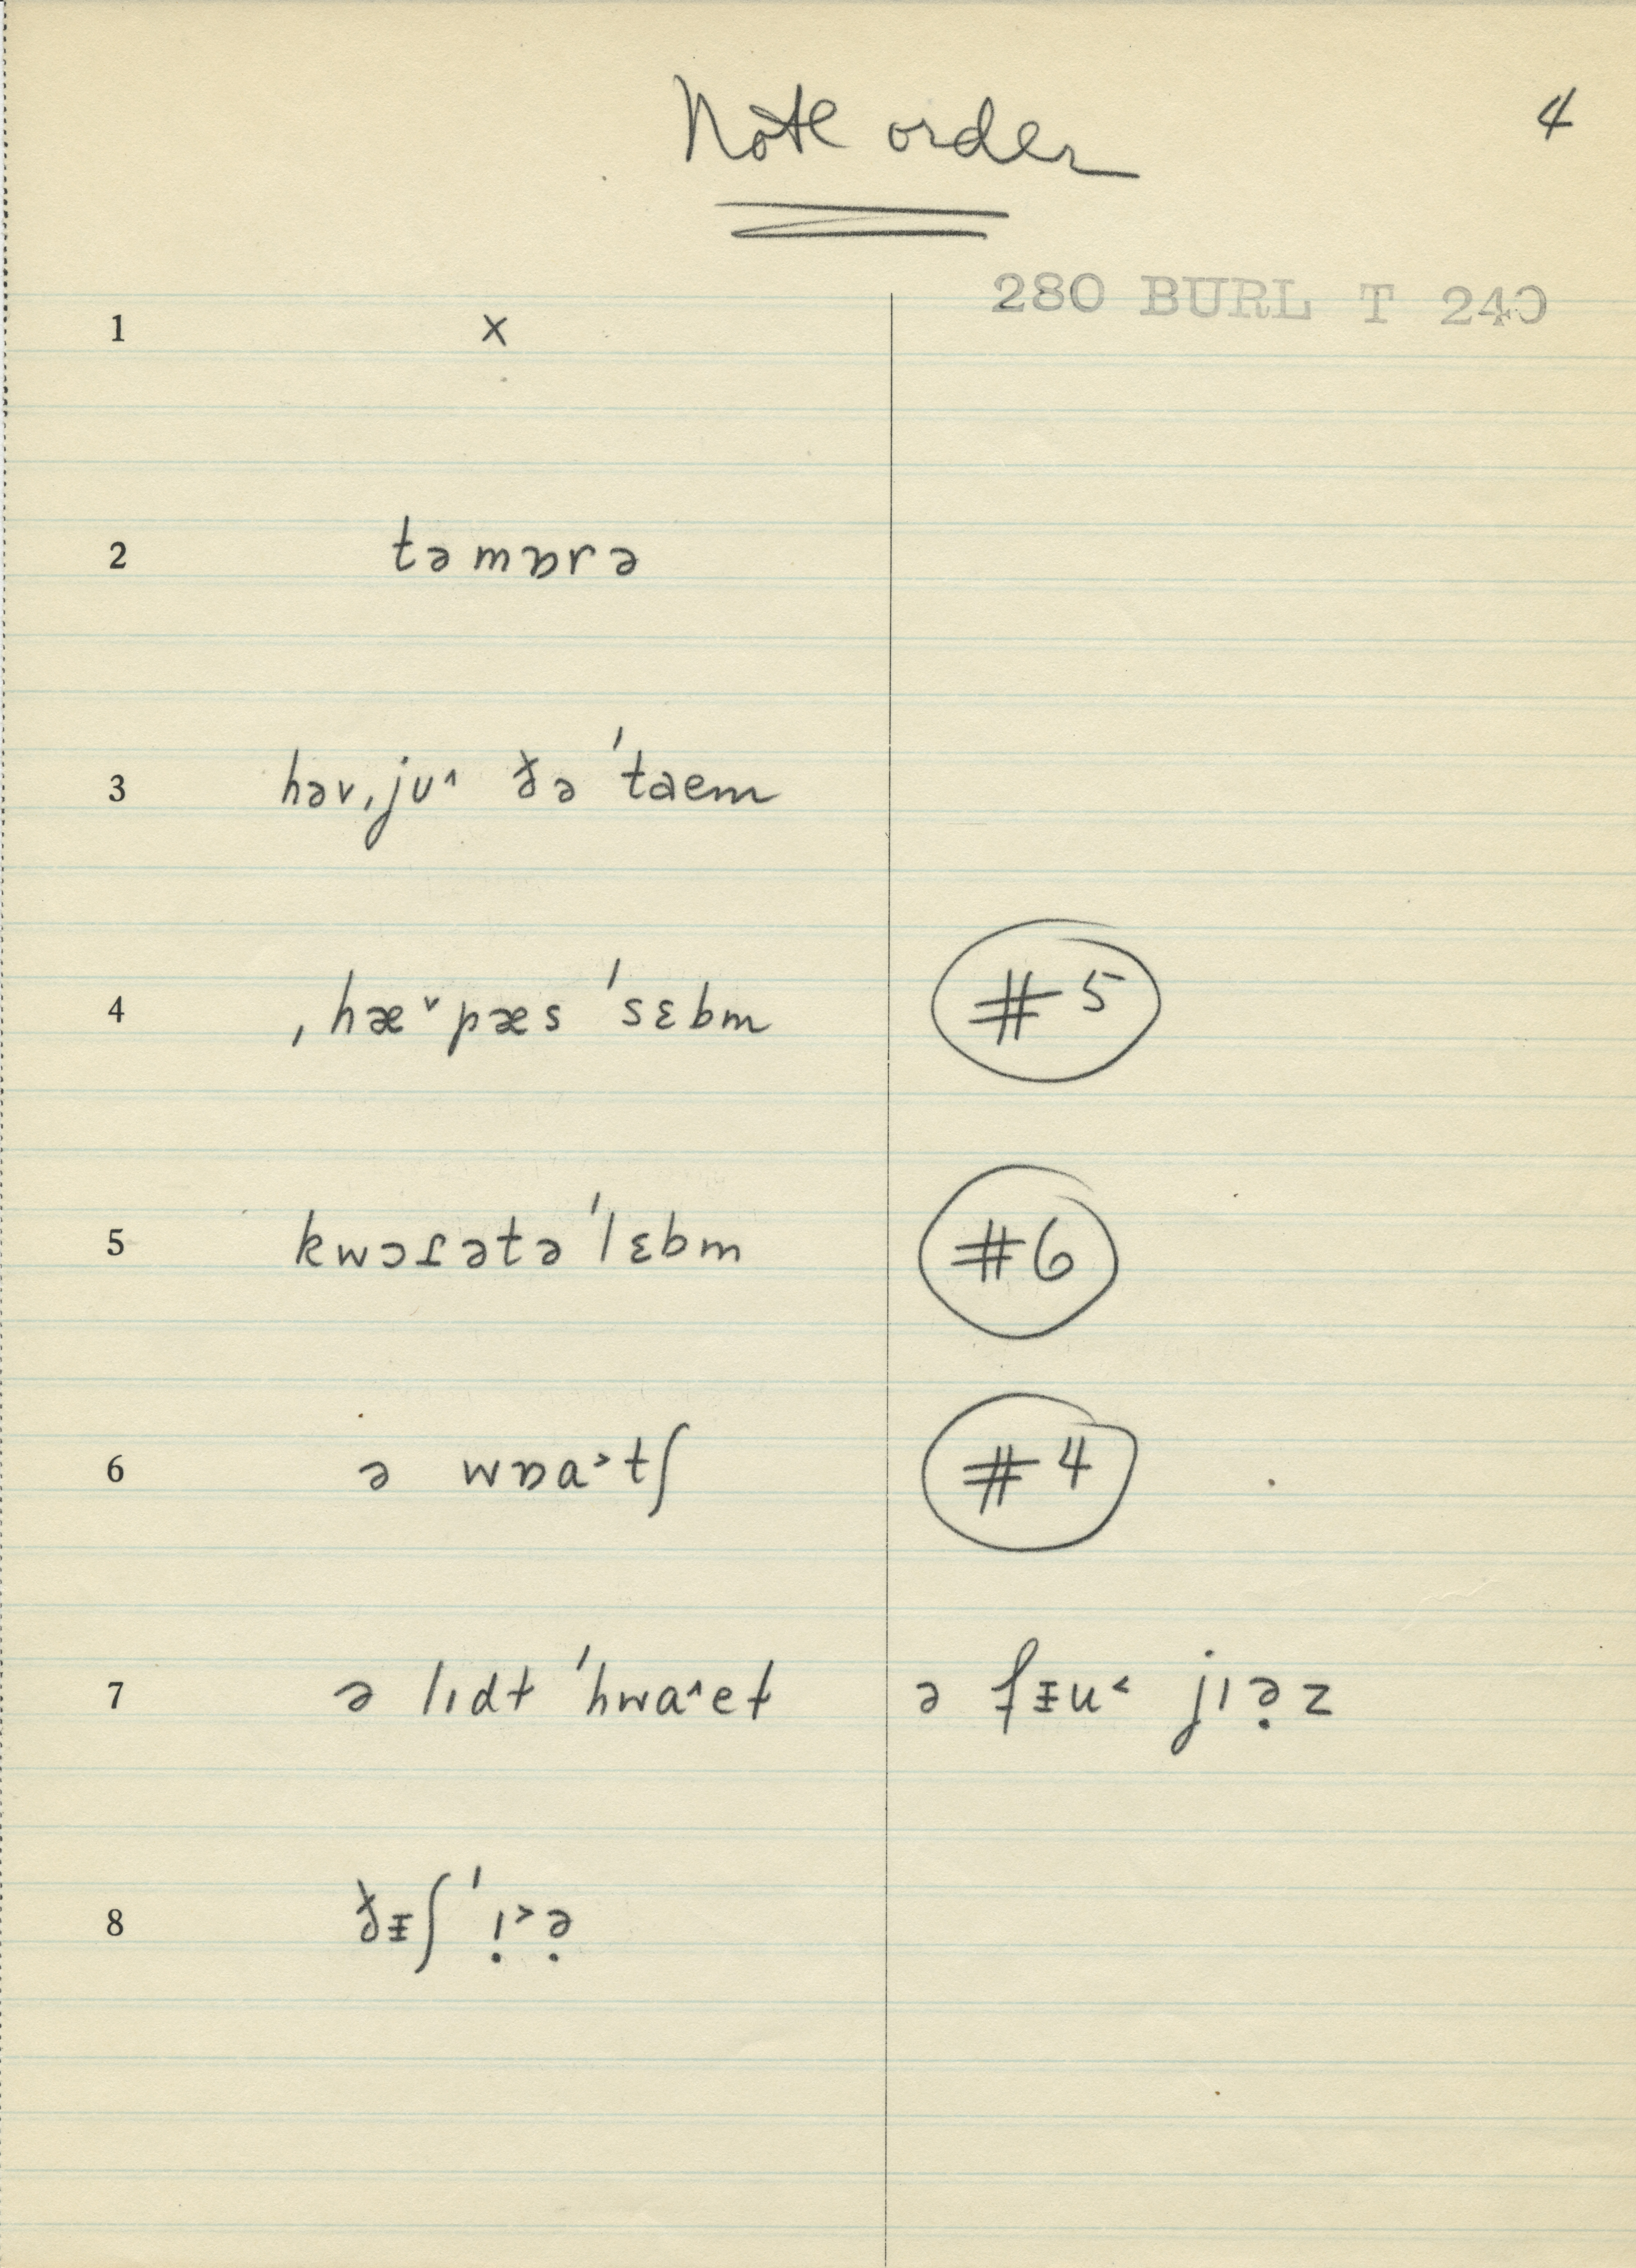 Note order
4
280 BURL T 240
1 x
2 təmɒrə
3 həvˌju^ ðə ˈtaem
4 ˌhæ˅pæs ˈsɛbm #5
5 kwɔɾətə ˈlɛbm #6
6 ə wɒa˃tʃ #4
7 ə lɪdt ˈhwa^eɫ ə fᵻu˂ jɪə̣z
8 ðᵻʃ ˈɪ̣˃ə̣